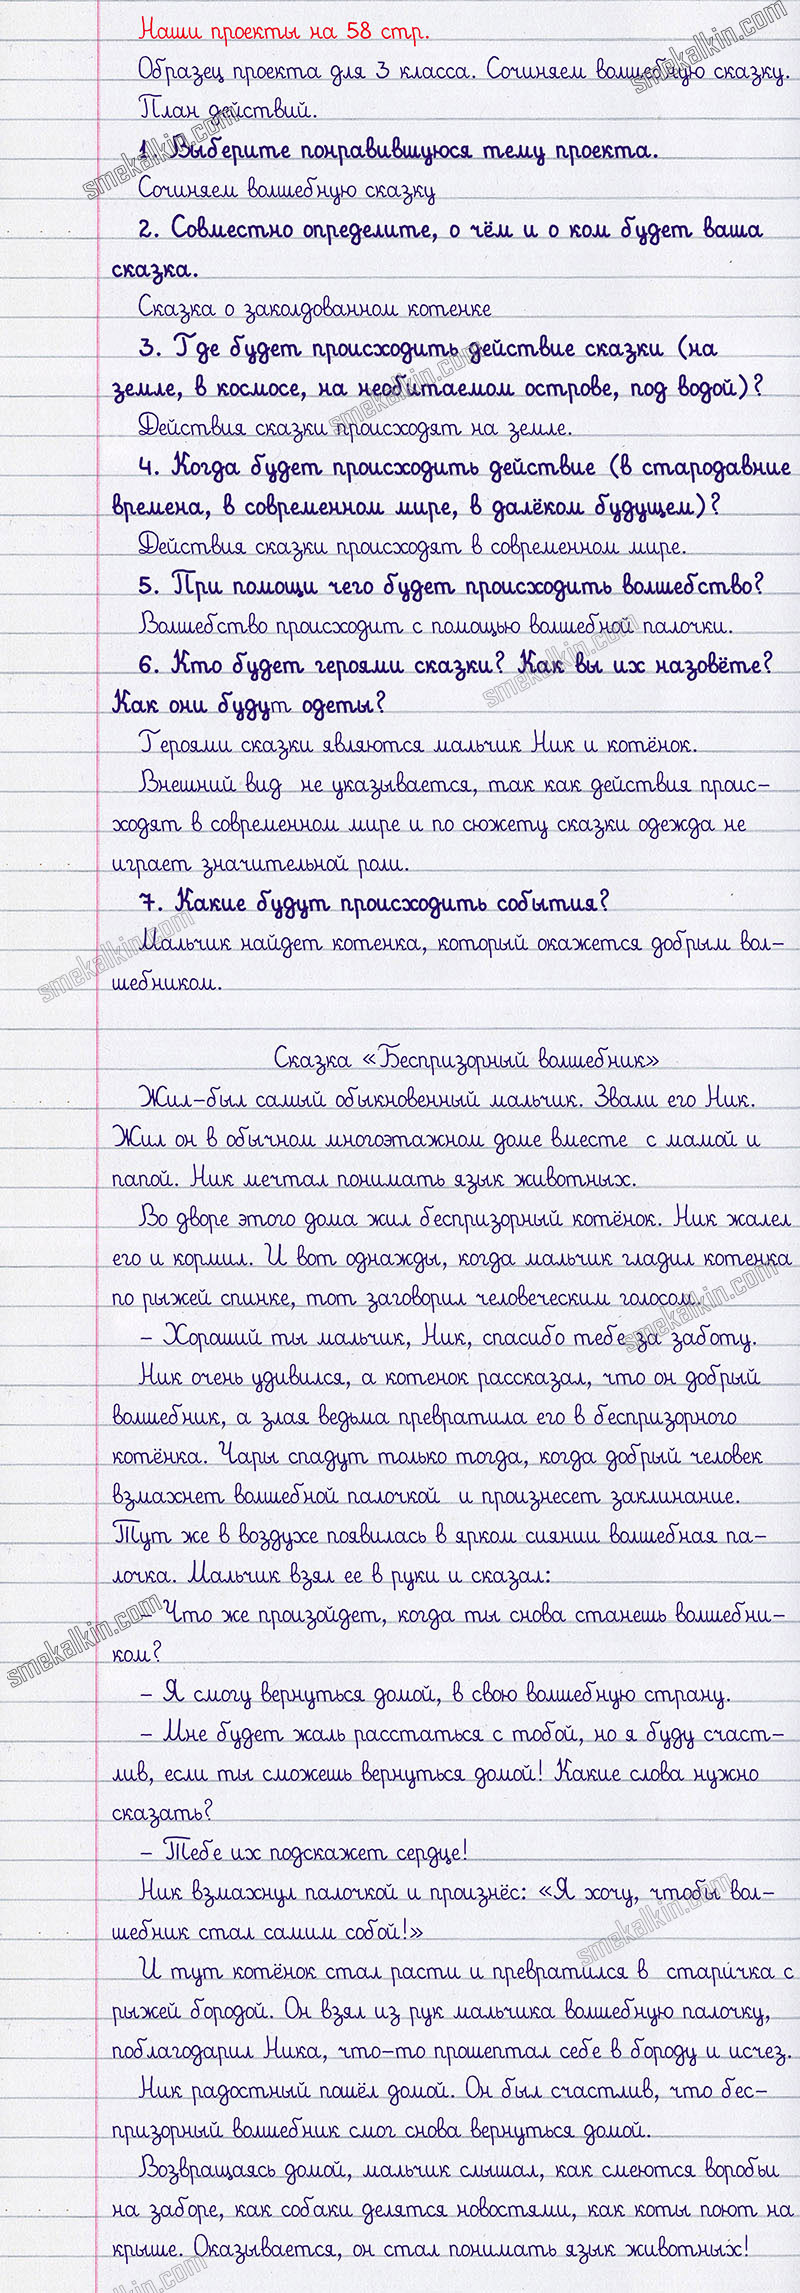 Наши проекты на 58 стр.
Образец проекта для 3 класса. Сочиняем волшебную сказку.
План действий.
1. Выберите понравившуюся тему проекта.
Сочиняем волшебную сказку
2. Совместно определите, о чём и о ком будет ваша
сказка.
Сказка о заколдованном котенке
3. Где будет происходить действие сказки (на
земле, в космосе, на необитаемом острове, под водой)?
Действия сказки происходят на земле.
4. Когда будет происходить действие (в стародавние
времена, в современном мире, в далёком будущем)?
Действия сказки происходят в современном мире.
5. При помощи чего будет происходить волшебство?
Волшебство происходит с помощью волшебной палочки.
6. Кто будет героями сказки? Как вы их назовёте?
Как они будут одеты?
Героями сказки являются мальчик Ник и котёнок.
Внешний вид не указывается, так как действия проис-
ходят в современном мире и по сюжету сказки одежда не
играет значительной роли.
7. Какие будут происходить события?
Мальчик найдет котенка, который окажется добрым вол-
шебником.
Сказка «Беспризорный волшебник»
Жил-был самый обыкновенный мальчик. Звали его Ник.
Жил он в обычном многоэтажном доме вместе с мамой и
папой. Ник мечтал понимать язык животных.
Во дворе этого дома жил беспризорный котёнок. Ник жалел
его и кормил. И вот однажды, когда мальчик гладил котенка
по рыжей спинке, тот заговорил человеческим голосом.
- Хороший ты мальчик, Ник, спасибо тебе за заботу.
Ник очень удивился, а котенок рассказал, что он добрый
волшебник, а злая ведьма превратила его в беспризорного
котёнка. Чары спадут только тогда, когда добрый человек
взмахнет волшебной палочкой и произнесет заклинание.
Тут же в воздухе появилась в ярком сиянии волшебная па-
лочка. Мальчик взял ее в руки и сказал:
- Что же произойдет, когда ты снова станешь волшебни-
ком?
- Я смогу вернуться домой, в свою волшебную страну.
- Мне будет жаль расстаться с тобой, но я буду счаст-
лив, если ты сможешь вернуться домой! Какие слова нужно
сказать?
- Тебе их подскажет сердце!
Ник взмахнул палочкой и произнёс: «Я хочу, чтобы вол-
шебник стал самим собой!»
И тут котёнок стал расти и превратился в старичка с
рыжей бородой. Он взял из рук мальчика волшебную палочку,
поблагодарил Ника, что-то прошептал себе в бороду и исчез.
Ник радостный пошёл домой. Он был счастлив, что бес-
призорный волшебник смог снова вернуться домой.
Возвращаясь домой, мальчик слышал, как смеются воробьи
на заборе, как собаки делятся новостями, как коты поют на
крыше. Оказывается, он стал понимать язык животных!
smekalkin.com
smekalkin.com
smekalkin.com
smekalkin.com
smekalkin.com
smekalkin.com
smekalkin.com
smekalkin.com
smekalkin.com